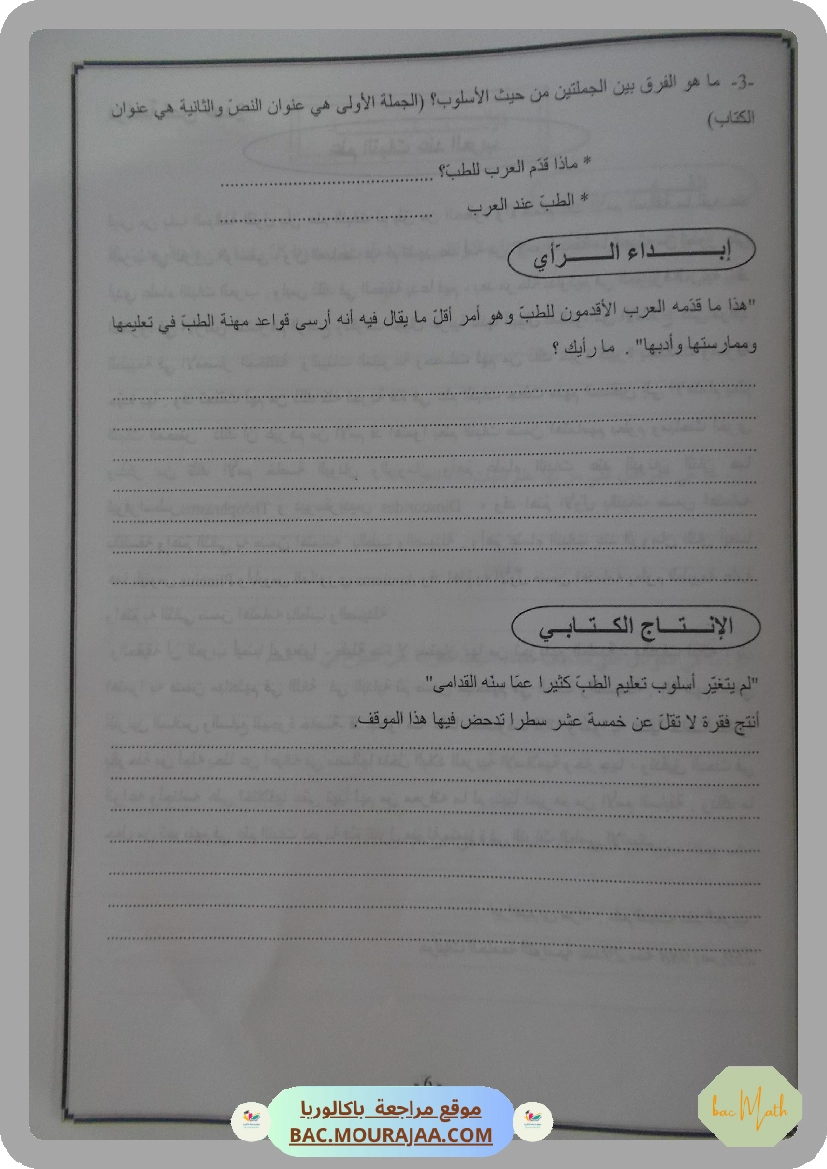 -3- ما هو الفرق بين الجملتين من حيث الأسلوب؟ (الجملة الأولى هي عنوان النصّ والثانية هي عنوان
الكتاب)
* ماذا قدّم العرب للطبّ؟ ........................................
* الطبّ عند العرب ........................................
إبـــــداء الـــــرّأي
"هذا ما قدّمه العرب الأقدمون للطبّ وهو أمر أقلّ ما يقال فيه أنه أرسى قواعد مهنة الطبّ في تعليمها
وممارستها وأدبها" . ما رأيك ؟
الإنـــتـــاج الكـــتـــابـي
"لم يتغيّر أسلوب تعليم الطبّ كثيرا عمّا سنّه القدامى"
أنتج فقرة لا تقلّ عن خمسة عشر سطرا تدحض فيها هذا الموقف.
-6-
موقع مراجعة باكالوريا
BAC.MOURAJAA.COM
bac Math